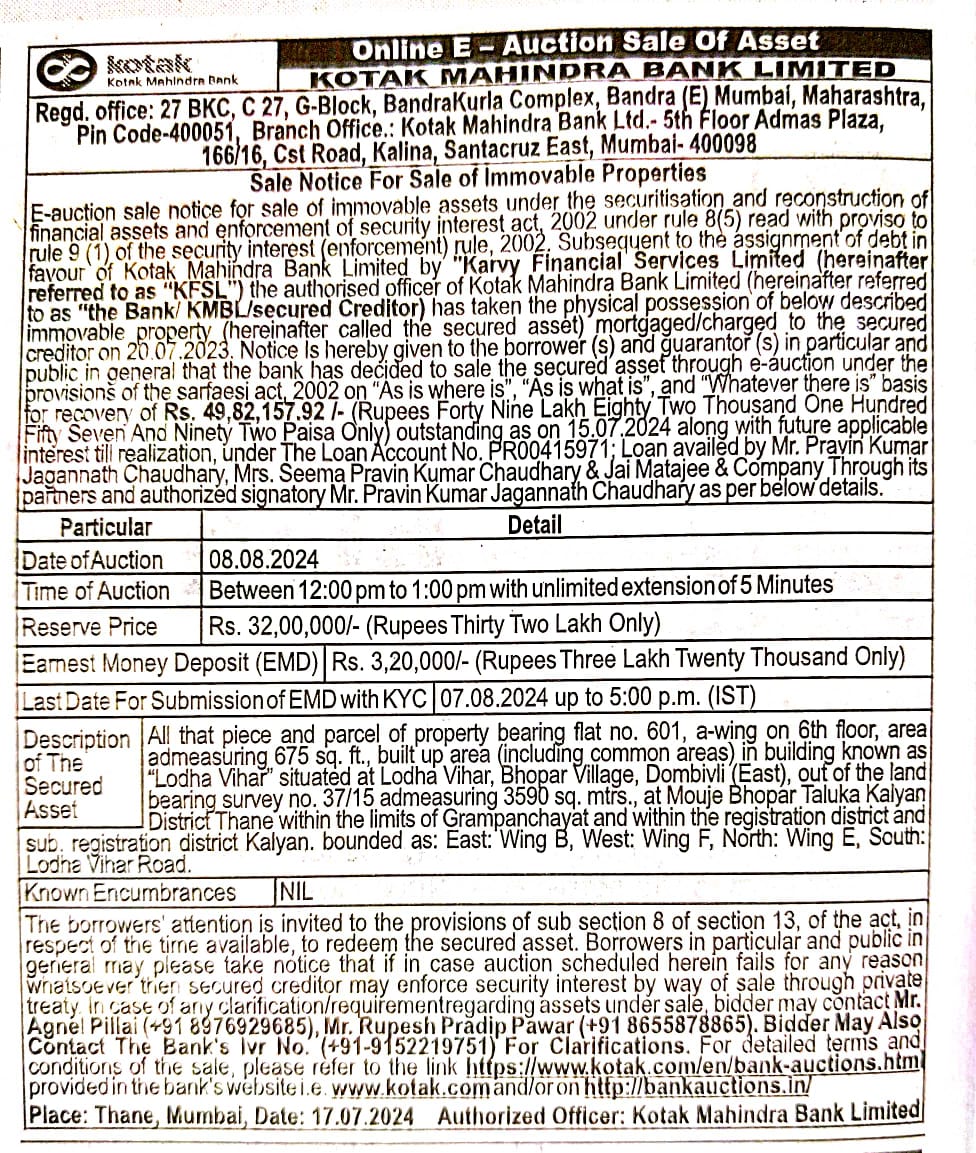 kotak
Kotak Mahindra Bank
Online E – Auction Sale Of Asset
KOTAK MAHINDRA BANK LIMITED
Regd. office: 27 BKC, C 27, G-Block, BandraKurla Complex, Bandra (E) Mumbai, Maharashtra,
Pin Code-400051, Branch Office.: Kotak Mahindra Bank Ltd.- 5th Floor Admas Plaza,
166/16, Cst Road, Kalina, Santacruz East, Mumbai- 400098
Sale Notice For Sale of Immovable Properties
E-auction sale notice for sale of immovable assets under the securitisation and reconstruction of
financial assets and enforcement of security interest act, 2002 under rule 8(5) read with proviso to
rule 9 (1) of the security interest (enforcement) rule, 2002. Subsequent to the assignment of debt in
favour of Kotak Mahindra Bank Limited by "Karvy Financial Services Limited (hereinafter
referred to as "KFSL") the authorised officer of Kotak Mahindra Bank Limited (hereinafter referred
to as "the Bank/ KMBL/secured Creditor) has taken the physical possession of below described
immovable property (hereinafter called the secured asset) mortgaged/charged to the secured
creditor on 20.07.2023. Notice Is hereby given to the borrower (s) and guarantor (s) in particular and
public in general that the bank has decided to sale the secured asset through e-auction under the
provisions of the sarfaesi act, 2002 on "As is where is", "As is what is", and "Whatever there is" basis
for recovery of Rs. 49,82,157.92 /- (Rupees Forty Nine Lakh Eighty Two Thousand One Hundred
Fifty Seven And Ninety Two Paisa Only) outstanding as on 15.07.2024 along with future applicable
interest till realization, under The Loan Account No. PR00415971; Loan availed by Mr. Pravin Kumar
Jagannath Chaudhary, Mrs. Seema Pravin Kumar Chaudhary & Jai Matajee & Company Through its
partners and authorized signatory Mr. Pravin Kumar Jagannath Chaudhary as per below details.
Particular Detail
Date of Auction 08.08.2024
Time of Auction Between 12:00 pm to 1:00 pm with unlimited extension of 5 Minutes
Reserve Price Rs. 32,00,000/- (Rupees Thirty Two Lakh Only)
Earnest Money Deposit (EMD) Rs. 3,20,000/- (Rupees Three Lakh Twenty Thousand Only)
Last Date For Submission of EMD with KYC 07.08.2024 up to 5:00 p.m. (IST)
Description of The Secured Asset All that piece and parcel of property bearing flat no. 601, a-wing on 6th floor, area
admeasuring 675 sq. ft., built up area (including common areas) in building known as
"Lodha Vihar" situated at Lodha Vihar, Bhopar Village, Dombivli (East), out of the land
bearing survey no. 37/15 admeasuring 3590 sq. mtrs., at Mouje Bhopar Taluka Kalyan
District Thane within the limits of Grampanchayat and within the registration district and
sub. registration district Kalyan. bounded as: East: Wing B, West: Wing F, North: Wing E, South:
Lodha Vihar Road.
Known Encumbrances NIL
The borrowers' attention is invited to the provisions of sub section 8 of section 13, of the act, in
respect of the time available, to redeem the secured asset. Borrowers in particular and public in
general may please take notice that if in case auction scheduled herein fails for any reason
whatsoever then secured creditor may enforce security interest by way of sale through private
treaty. In case of any clarification/requirementregarding assets under sale, bidder may contact Mr.
Agnel Pillai (+91 8976929685), Mr. Rupesh Pradip Pawar (+91 8655878865). Bidder May Also
Contact The Bank's Ivr No. (+91-9152219751) For Clarifications. For detailed terms and
conditions of the sale, please refer to the link https://www.kotak.com/en/bank-auctions.html
provided in the bank's website i.e. www.kotak.com and/or on http://bankauctions.in/
Place: Thane, Mumbai, Date: 17.07.2024 Authorized Officer: Kotak Mahindra Bank Limited